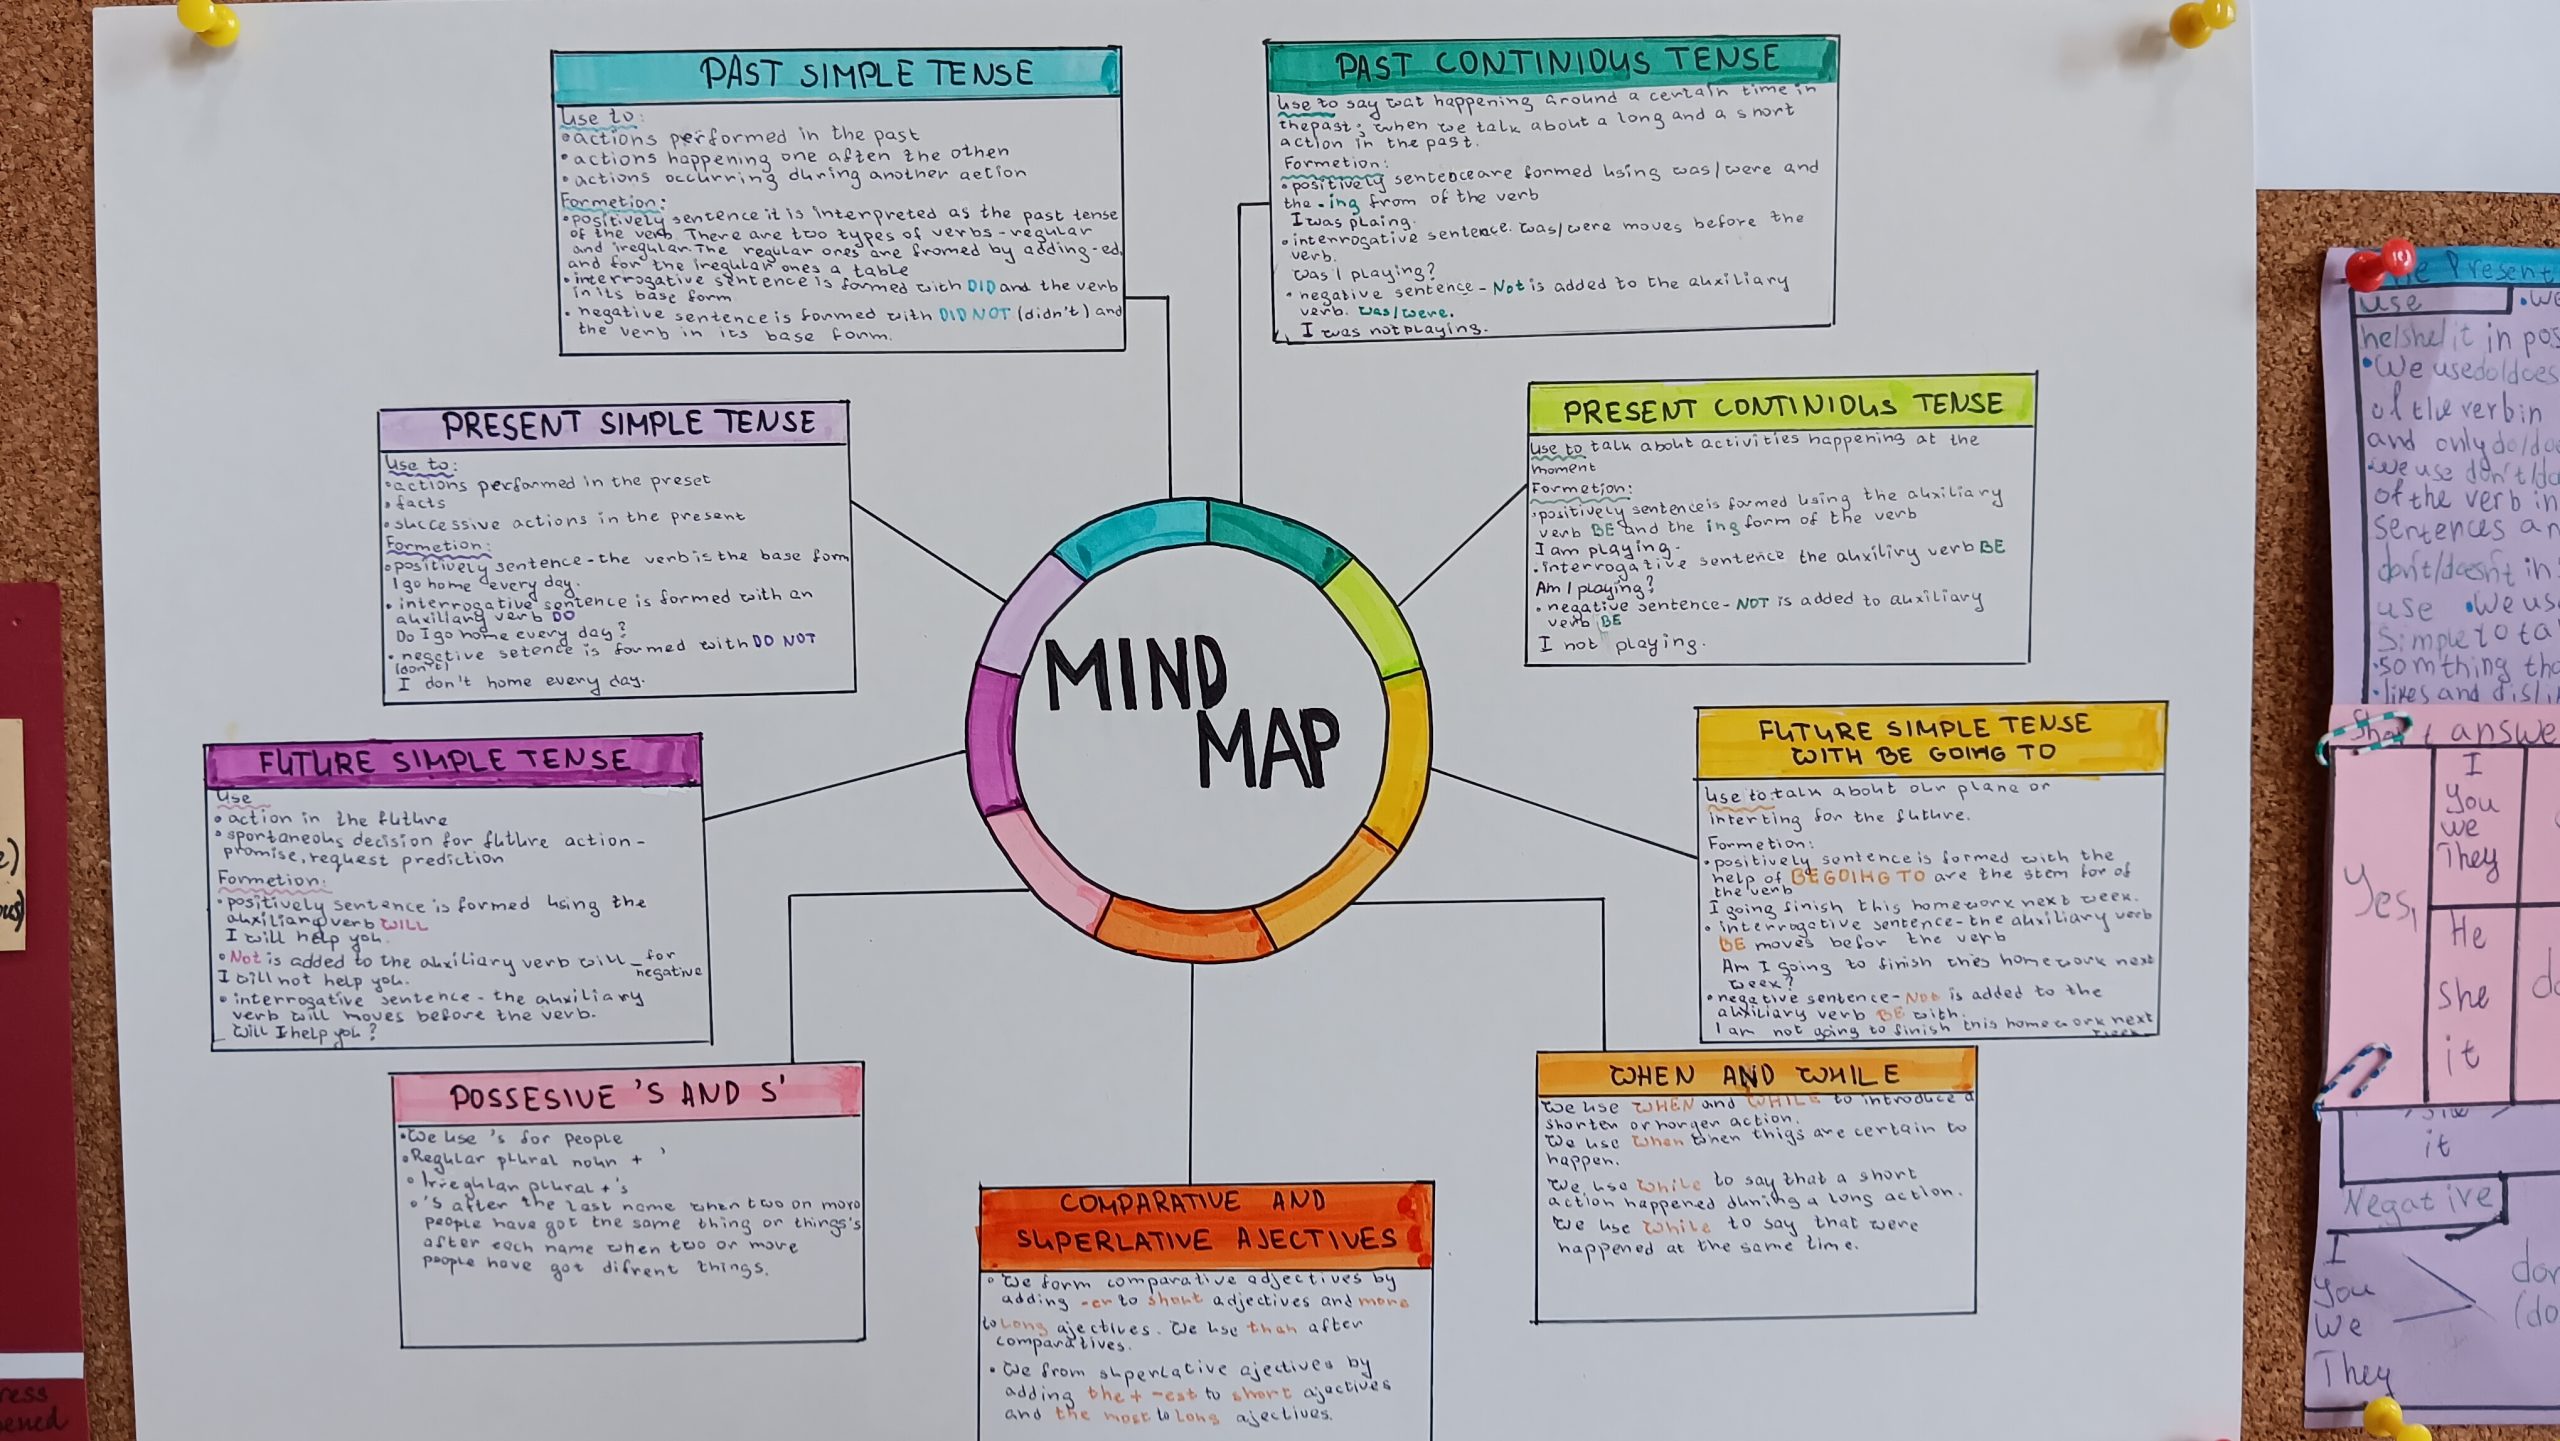 PAST SIMPLE TENSE
Use to:
•actions performed in the past
•actions happening one after the other
•actions occurring during another aetion
Formetion:
•positively sentence it is interpreted as the past tense
of the verb. There are two types of verbs-regular
and iregular. The regular ones are fromed by adding-ed,
and for the iregular ones a table
•interrogative sentence is formed with DID and the verb
in its base form
• negative sentence is formed with DID NOT (didn't) and
the verb in its base form.
PAST CONTINIOUS TENSE
Use to say wat happening around a certain time in
the past; when we talk about a long and a short
action in the past.
Formetion:
•positively sentence are formed using was/were and
the -ing from of the verb
I was plaing.
•interrogative sentence. was/were moves before the
verb.
Was I playing?
• negative sentence - Not is added to the auxiliary
verb. was/were.
I was not playing.
PRESENT SIMPLE TENSE
Use to:
•actions performed in the preset
•facts
•successive actions in the present
Formetion:
•positively sentence-the verb is the base form
I go home every day.
• interrogative sentence is formed with an
auxiliary verb DO
Do I go home every day?
• negective setence is formed with DO NOT
(don't)
I don't home every day.
PRESENT CONTINIOUS TENSE
Use to talk about activities happening at the
moment
Formetion:
•positively sentence is formed using the auxiliary
verb BE and the ing form of the verb
I am playing.
•interrogative sentence the auxilivy verb BE
Am I playing?
• negative sentence- NOT is added to auxiliary
verb BE
I not playing.
MIND
MAP
FUTURE SIMPLE TENSE
Use
•action in the future
•spontaneous decision for future action-
promise, request prediction
Formetion:
•positively sentence is formed using the
auxiliary verb WILL
I will help you.
•Not is added to the auxiliary verb will _ for
negative
I will not help you.
• interrogative sentence - the auxiliary
verb will moves before the verb.
Will I help you?
FUTURE SIMPLE TENSE
WITH BE GOING TO
Use to talk about our plane or
interting for the future.
Formetion:
•positively sentence is formed with the
help of BE GOING TO are the stem for of
the verb
I going finish this homework next week.
• interrogative sentence-the auxiliary verb
BE moves befor the verb
Am I going to finish thies homework next
week?
•negative sentence- Not is added to the
auxiliary verb BE with.
I am not going to finish this homework next
POSSESIVE 'S AND S'
•We use 's for people
•Regular plural noun + '
• Irregular plural +'s
•'s after the last name when two on more
people have got the same thing or things's
after each name when two or more
people have got difrent things.
WHEN AND WHILE
We use WHEN and WHILE to introduce a
shorten or horger action.
We use when when thigs are certain to
happen.
We use while to say that a short
action happened duning a long action.
We use while to say that were
happened at the same time.
COMPARATIVE AND
SUPERLATIVE AJECTIVES
• We form comparative adjectives by
adding -er to short adjectives and more
to long ajectives. We use than after
comparatives.
• We from superlative ajectives by
adding the + -est to short ajectives
and the most to long ajectives.
Present
use •We
he/she/it in pos
•We use do/does
of the verb in
and only do/do
•We use don't/do
of the verb in
sentences an
don't/doesn't in
use •We us
Simple to ta
•somthing tha
•likes and disli
Short answe
Yes,
I
You
We
They
He
She
it
it
Negative
I
You
We
They
don
(do
ress
pened